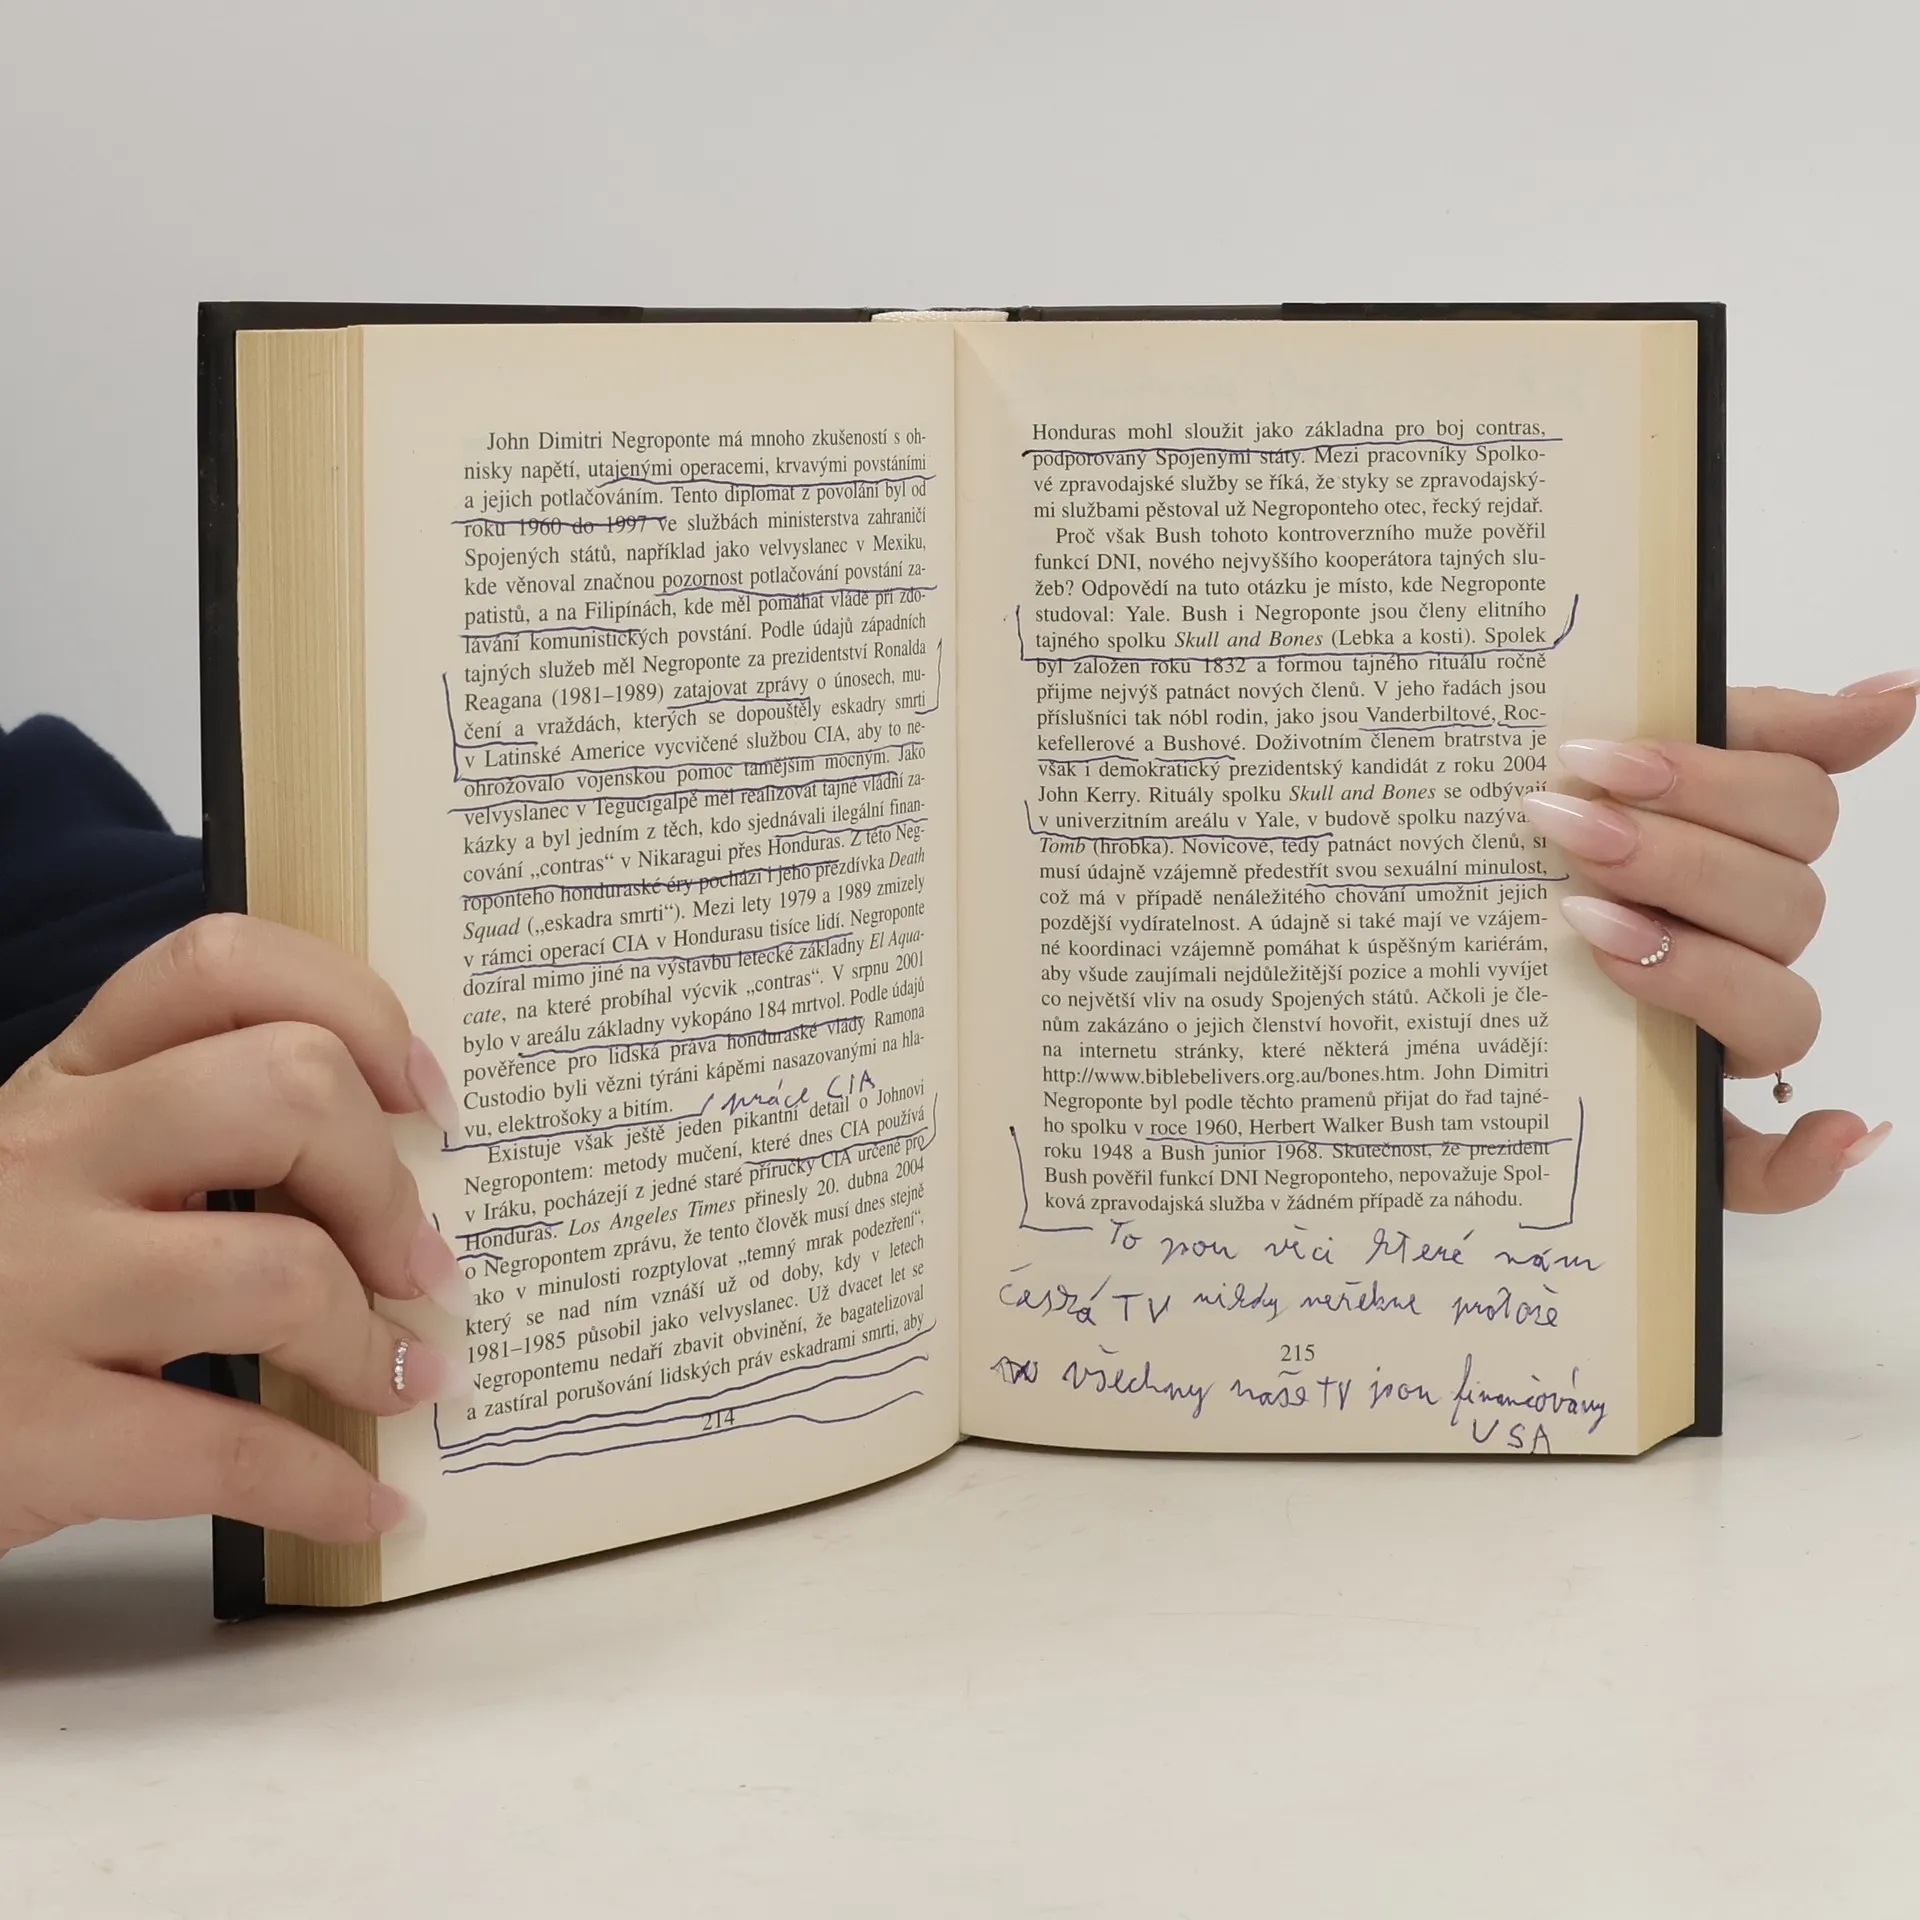 John Dimitri Negroponte má mnoho zkušeností s oh-
nisky napětí, utajenými operacemi, krvavými povstáními
a jejich potlačováním. Tento diplomat z povolání byl od
roku 1960 do 1997 ve službách ministerstva zahraničí
Spojených států, například jako velvyslanec v Mexiku,
kde věnoval značnou pozornost potlačování povstání za-
patistů, a na Filipínách, kde měl pomáhat vládě při zdo-
lávání komunistických povstání. Podle údajů západních
tajných služeb měl Negroponte za prezidentství Ronalda
Reagana (1981–1989) zatajovat zprávy o únosech, mu-
čení a vraždách, kterých se dopouštěly eskadry smrti
v Latinské Americe vycvičené službou CIA, aby to ne-
ohrožovalo vojenskou pomoc tamějším mocným. Jako
velvyslanec v Tegucigalpě měl realizovat tajné vládní za-
kázky a byl jedním z těch, kdo sjednávali ilegální finan-
cování „contras“ v Nikaragui přes Honduras. Z této Neg-
roponteho honduraské éry pochází i jeho přezdívka Death
Squad („eskadra smrti“). Mezi lety 1979 a 1989 zmizely
v rámci operací CIA v Hondurasu tisíce lidí. Negroponte
dozíral mimo jiné na výstavbu letecké základny El Aqua-
cate, na které probíhal výcvik „contras“. V srpnu 2001
bylo v areálu základny vykopáno 184 mrtvol. Podle údajů
pověřence pro lidská práva honduraské vlády Ramona
Custodio byli vězni týráni kápěmi nasazovanými na hla-
vu, elektrošoky a bitím. práce CIA
Existuje však ještě jeden pikantní detail o Johnovi
Negropontem: metody mučení, které dnes CIA používá
v Iráku, pocházejí z jedné staré příručky CIA určené pro
Honduras. Los Angeles Times přinesly 20. dubna 2004
o Negropontem zprávu, že tento člověk musí dnes stejně
jako v minulosti rozptylovat „temný mrak podezření“,
který se nad ním vznáší už od doby, kdy v letech
1981–1985 působil jako velvyslanec. Už dvacet let se
Negropontemu nedaří zbavit obvinění, že bagatelizoval
a zastíral porušování lidských práv eskadrami smrti, aby
214
Honduras mohl sloužit jako základna pro boj contras,
podporovaný Spojenými státy. Mezi pracovníky Spolko-
vé zpravodajské služby se říká, že styky se zpravodajský-
mi službami pěstoval už Negroponteho otec, řecký rejdař.
Proč však Bush tohoto kontroverzního muže pověřil
funkcí DNI, nového nejvyššího kooperátora tajných slu-
žeb? Odpovědí na tuto otázku je místo, kde Negroponte
studoval: Yale. Bush i Negroponte jsou členy elitního
tajného spolku Skull and Bones (Lebka a kosti). Spolek
byl založen roku 1832 a formou tajného rituálu ročně
přijme nejvýš patnáct nových členů. V jeho řadách jsou
příslušníci tak nóbl rodin, jako jsou Vanderbiltové, Roc-
kefellerové a Bushové. Doživotním členem bratrstva je
však i demokratický prezidentský kandidát z roku 2004
John Kerry. Rituály spolku Skull and Bones se odbývají
v univerzitním areálu v Yale, v budově spolku
Tomb (hrobka). Novicové, tedy patnáct nových členů, si
musí údajně vzájemně předestřít svou sexuální minulost,
což má v případě nenáležitého chování umožnit jejich
pozdější vydíratelnost. A údajně si také mají ve vzájem-
né koordinaci vzájemně pomáhat k úspěšným kariérám,
aby všude zaujímali nejdůležitější pozice a mohli vyvíjet
co největší vliv na osudy Spojených států. Ačkoli je čle-
nům zakázáno o jejich členství hovořit, existují dnes už
na internetu stránky, které některá jména uvádějí:
http://www.biblebelivers.org.au/bones.htm. John Dimitri
Negroponte byl podle těchto pramenů přijat do řad tajné-
ho spolku v roce 1960, Herbert Walker Bush tam vstoupil
roku 1948 a Bush junior 1968. Skutečnost, že prezident
Bush pověřil funkcí DNI Negroponteho, nepovažuje Spol-
ková zpravodajská služba v žádném případě za náhodu.
To jsou věci které nám
česká TV nikdy neřekne protože
215
všechny naše TV jsou financovány
USA